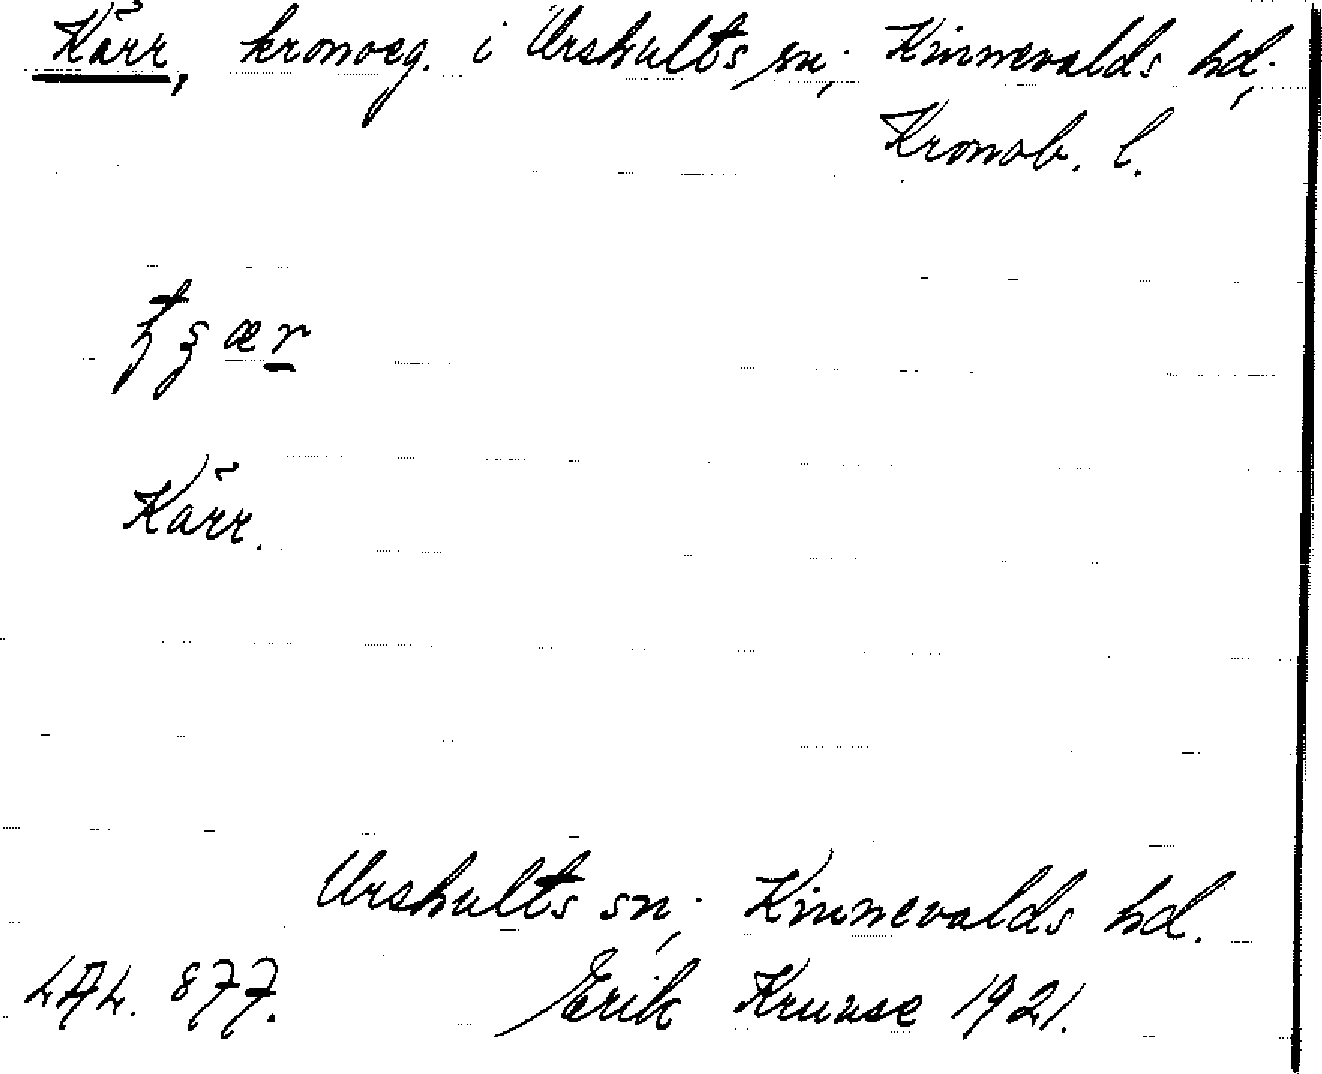 Kärr, kronoeg. i Urshults sn, Kinnevalds hd,
Kronob. l.
Kärr.
Urshults sn, Kinnevalds hd.
LAL. 877. Erik Kruuse 1921.